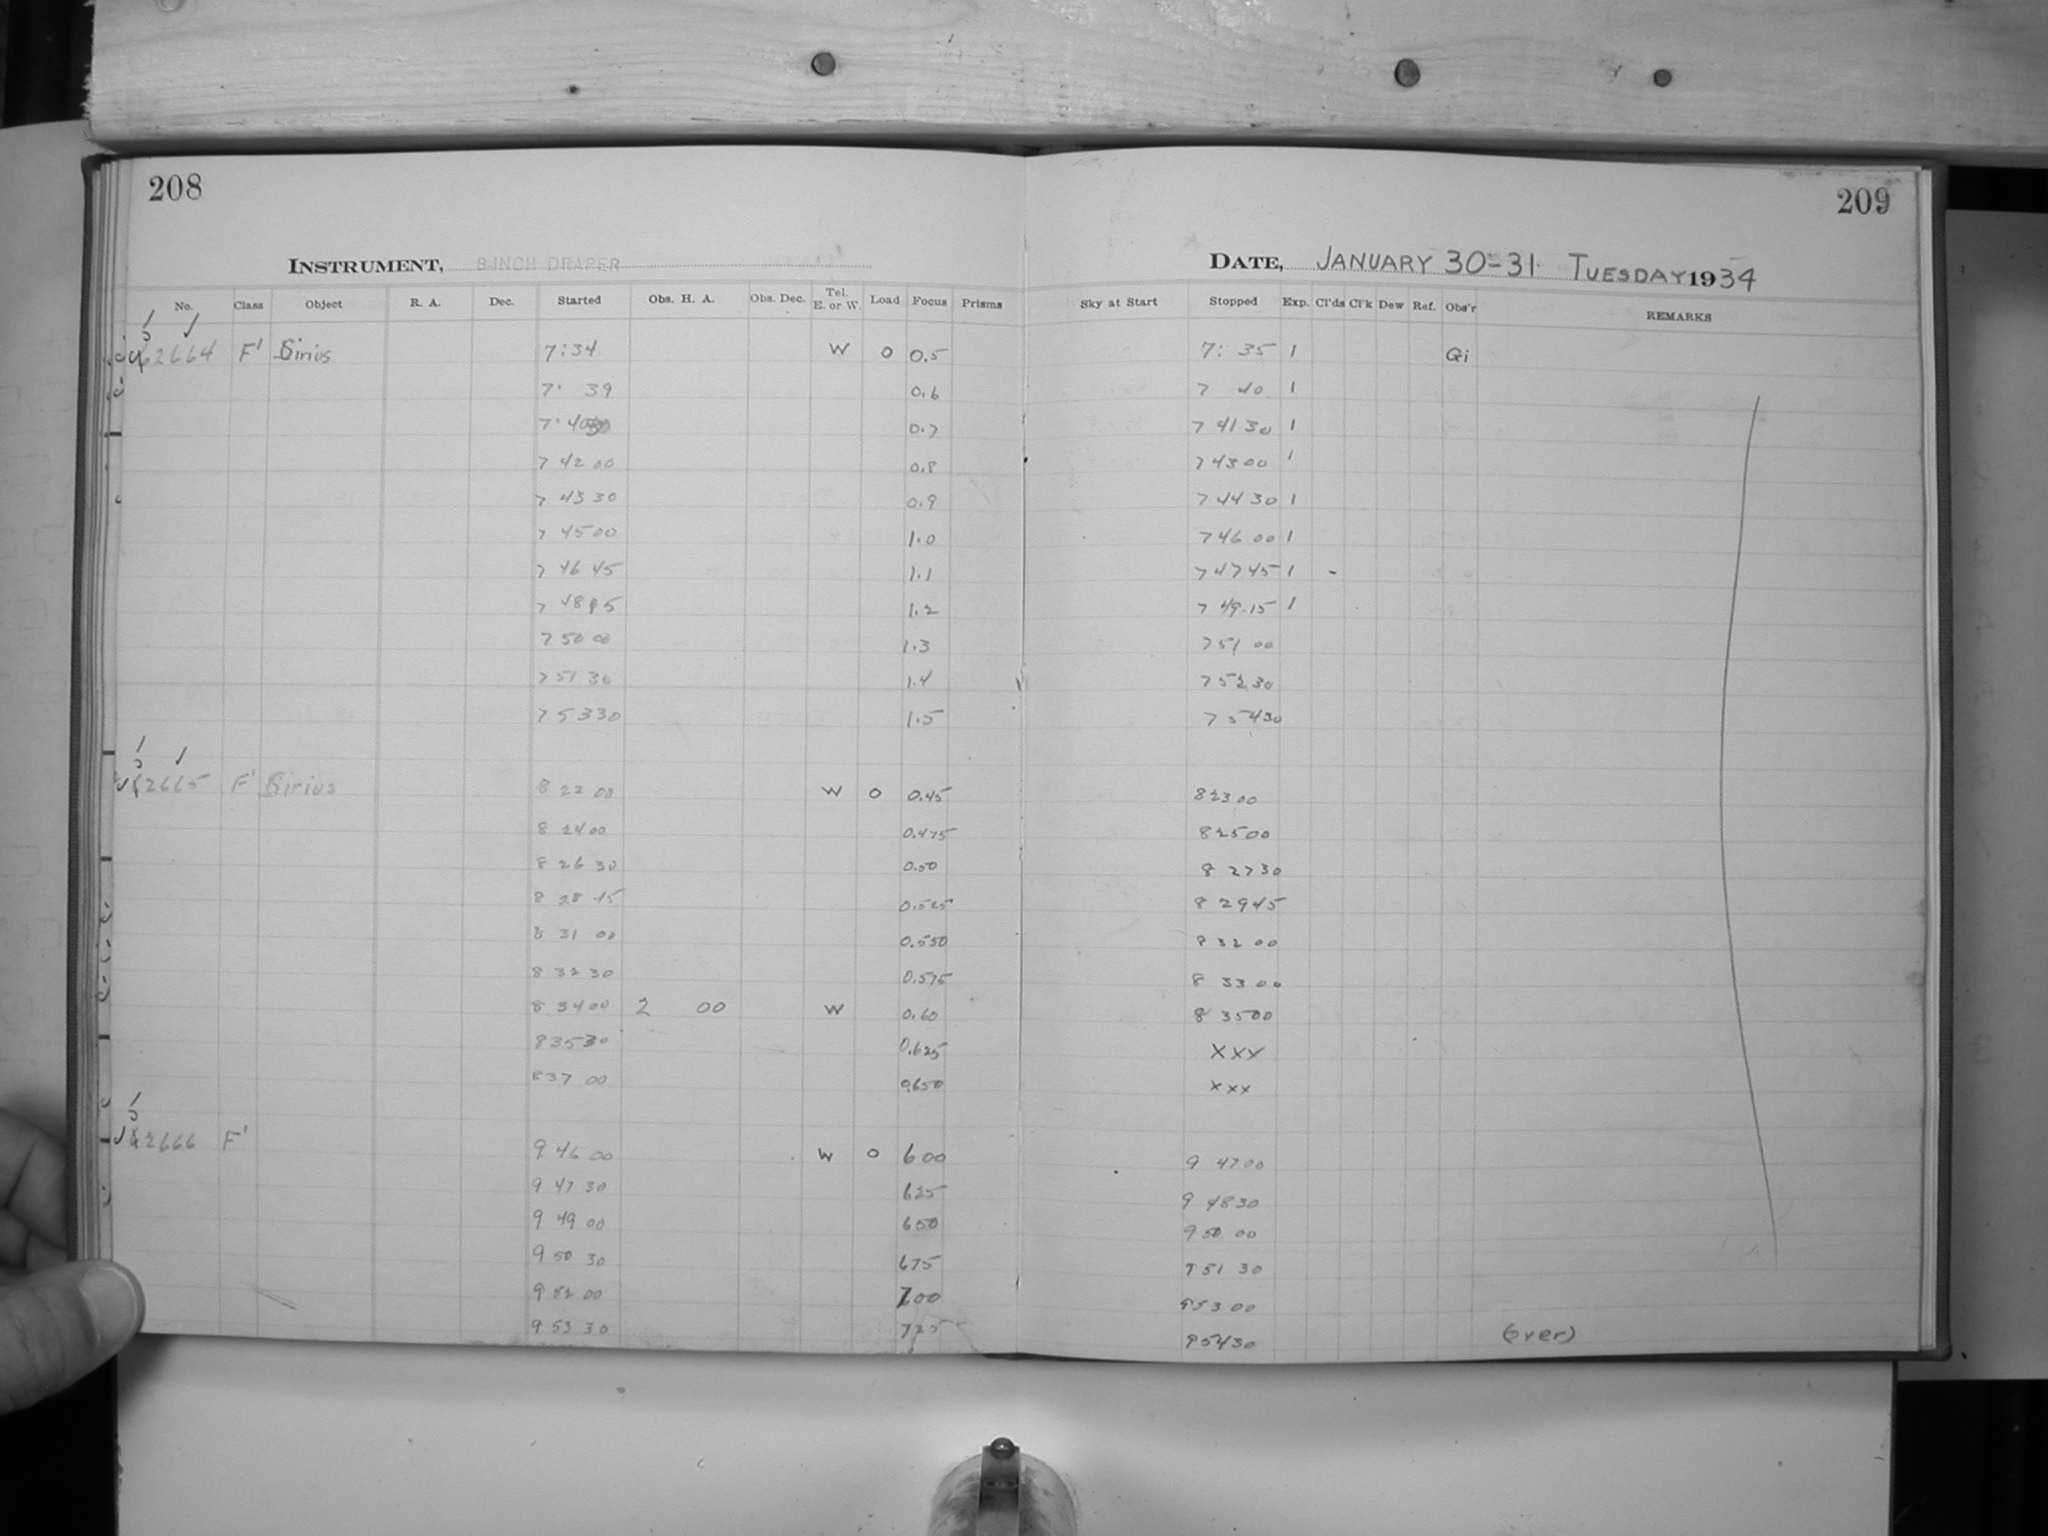 208
209
INSTRUMENT, 8 INCH DRAPER
DATE, JANUARY 30-31 TUESDAY 1934
No. Class Object R. A. Dec. Started Obs. H. A. Obs. Dec. Tel. E. or W. Load Focus Prisms Sky at Start Stopped Exp. Cl'ds Cl'k Dew Ref. Obs'r REMARKS
62664 F' Sirius 7:34 W 0 0.5 7: 35 1 Gi
7 39 0.6 7 40 1
7 40 0.7 7 41 30 1
7 42 00 0.8 7 43 00 1
7 43 30 0.9 7 44 30 1
7 45 00 1.0 7 46 00 1
7 46 45 1.1 7 47 45 1 -
7 48 15 1.2 7 49 15 1
7 50 00 1.3 7 51 00
7 51 30 1.4 7 52 30
7 53 30 1.5 7 54 30
2665 F' Sirius 8 22 00 W 0 0.45 8 23 00
8 24 00 0.475 8 25 00
8 26 30 0.50 8 27 30
8 28 45 0.525 8 29 45
8 31 00 0.550 8 32 00
8 32 30 0.575 8 33 00
8 34 00 2 00 W 0.60 8 35 00
8 35 30 0.625 XXX
8 37 00 0.650 XXX
2666 F' 9 46 00 W 0 600 9 47 00
9 47 30 625 9 48 30
9 49 00 650 9 50 00
9 50 30 675 9 51 30
9 52 00 700 9 53 00
9 53 30 725 9 54 30
(over)